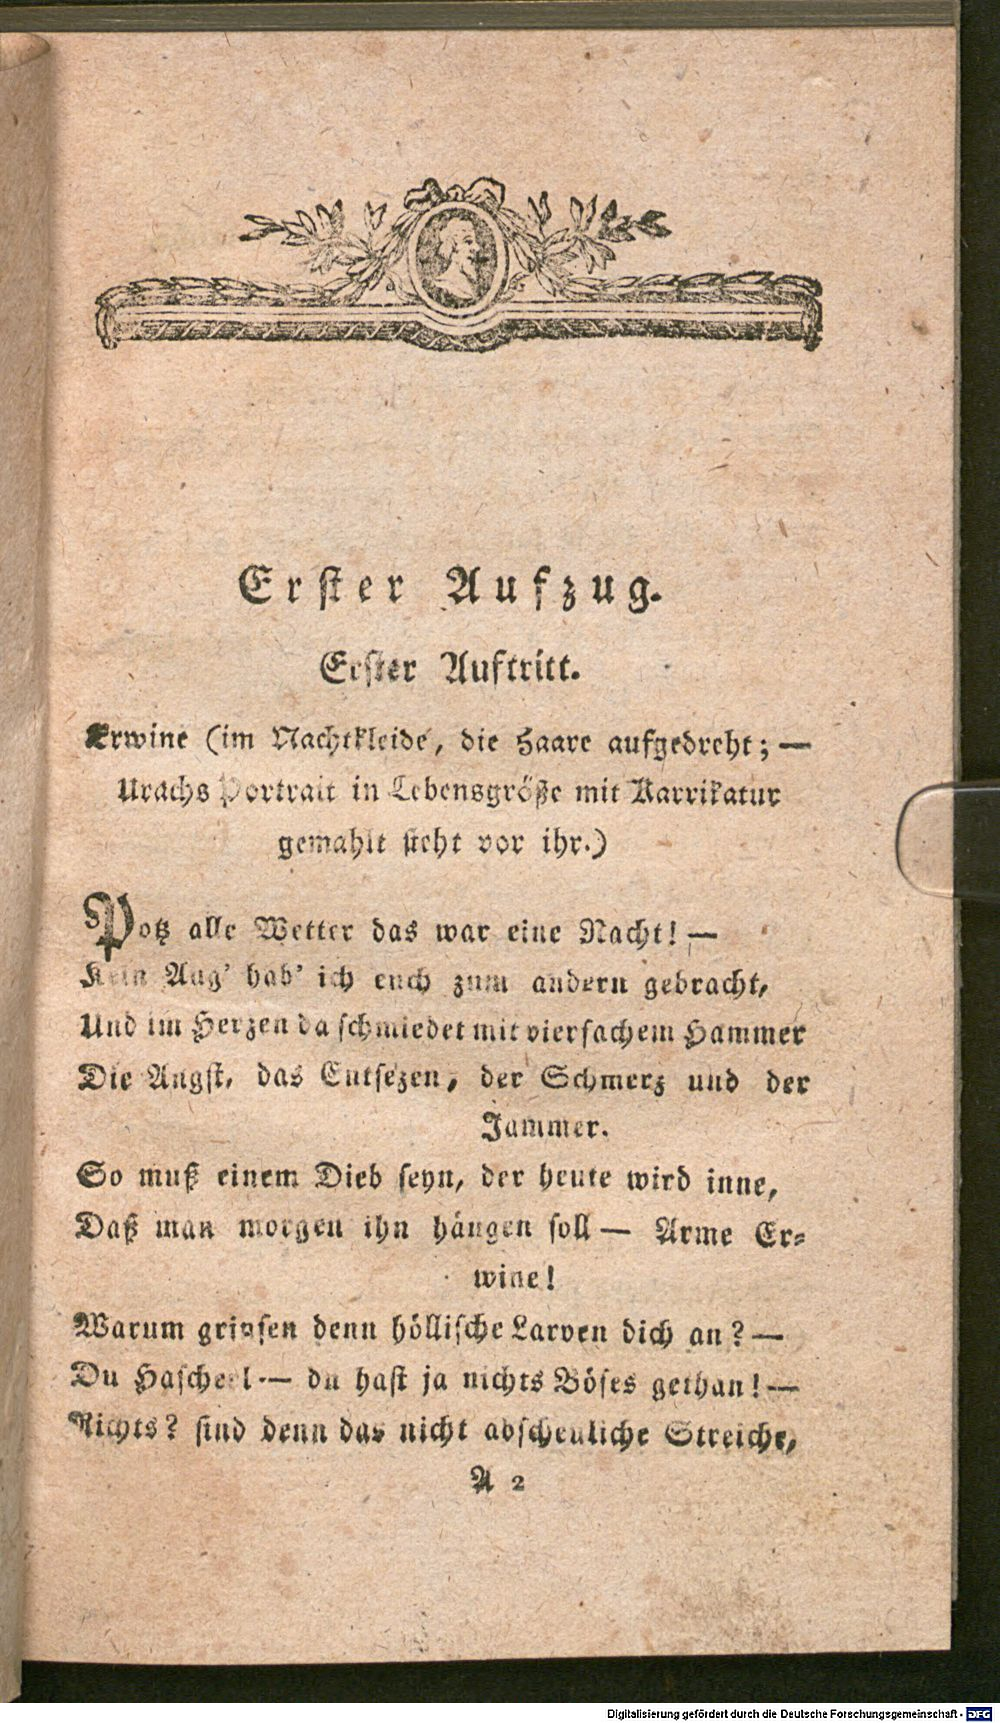 Erster Aufzug.
Erster Auftritt.
Erwine (im Nachtkleide, die Haare aufgedreht; —
Urachs Portrait in Lebensgröße mit Karrikatur
gemahlt steht vor ihr.)
Potz alle Wetter das war eine Nacht! —
Kein Aug' hab' ich euch zum andern gebracht,
Und im Herzen da schmiedet mit vierfachem Hammer
Die Angst, das Entsezen, der Schmerz und der
Jammer.
So muß einem Dieb seyn, der heute wird inne,
Daß man morgen ihn hängen soll — Arme Er-
wine!
Warum grinsen denn höllische Larven dich an? —
Du Hascherl — du hast ja nichts Böses gethan! —
Nichts? sind denn das nicht abscheuliche Streiche,
A 2
Digitalisierung gefördert durch die Deutsche Forschungsgemeinschaft - DFG